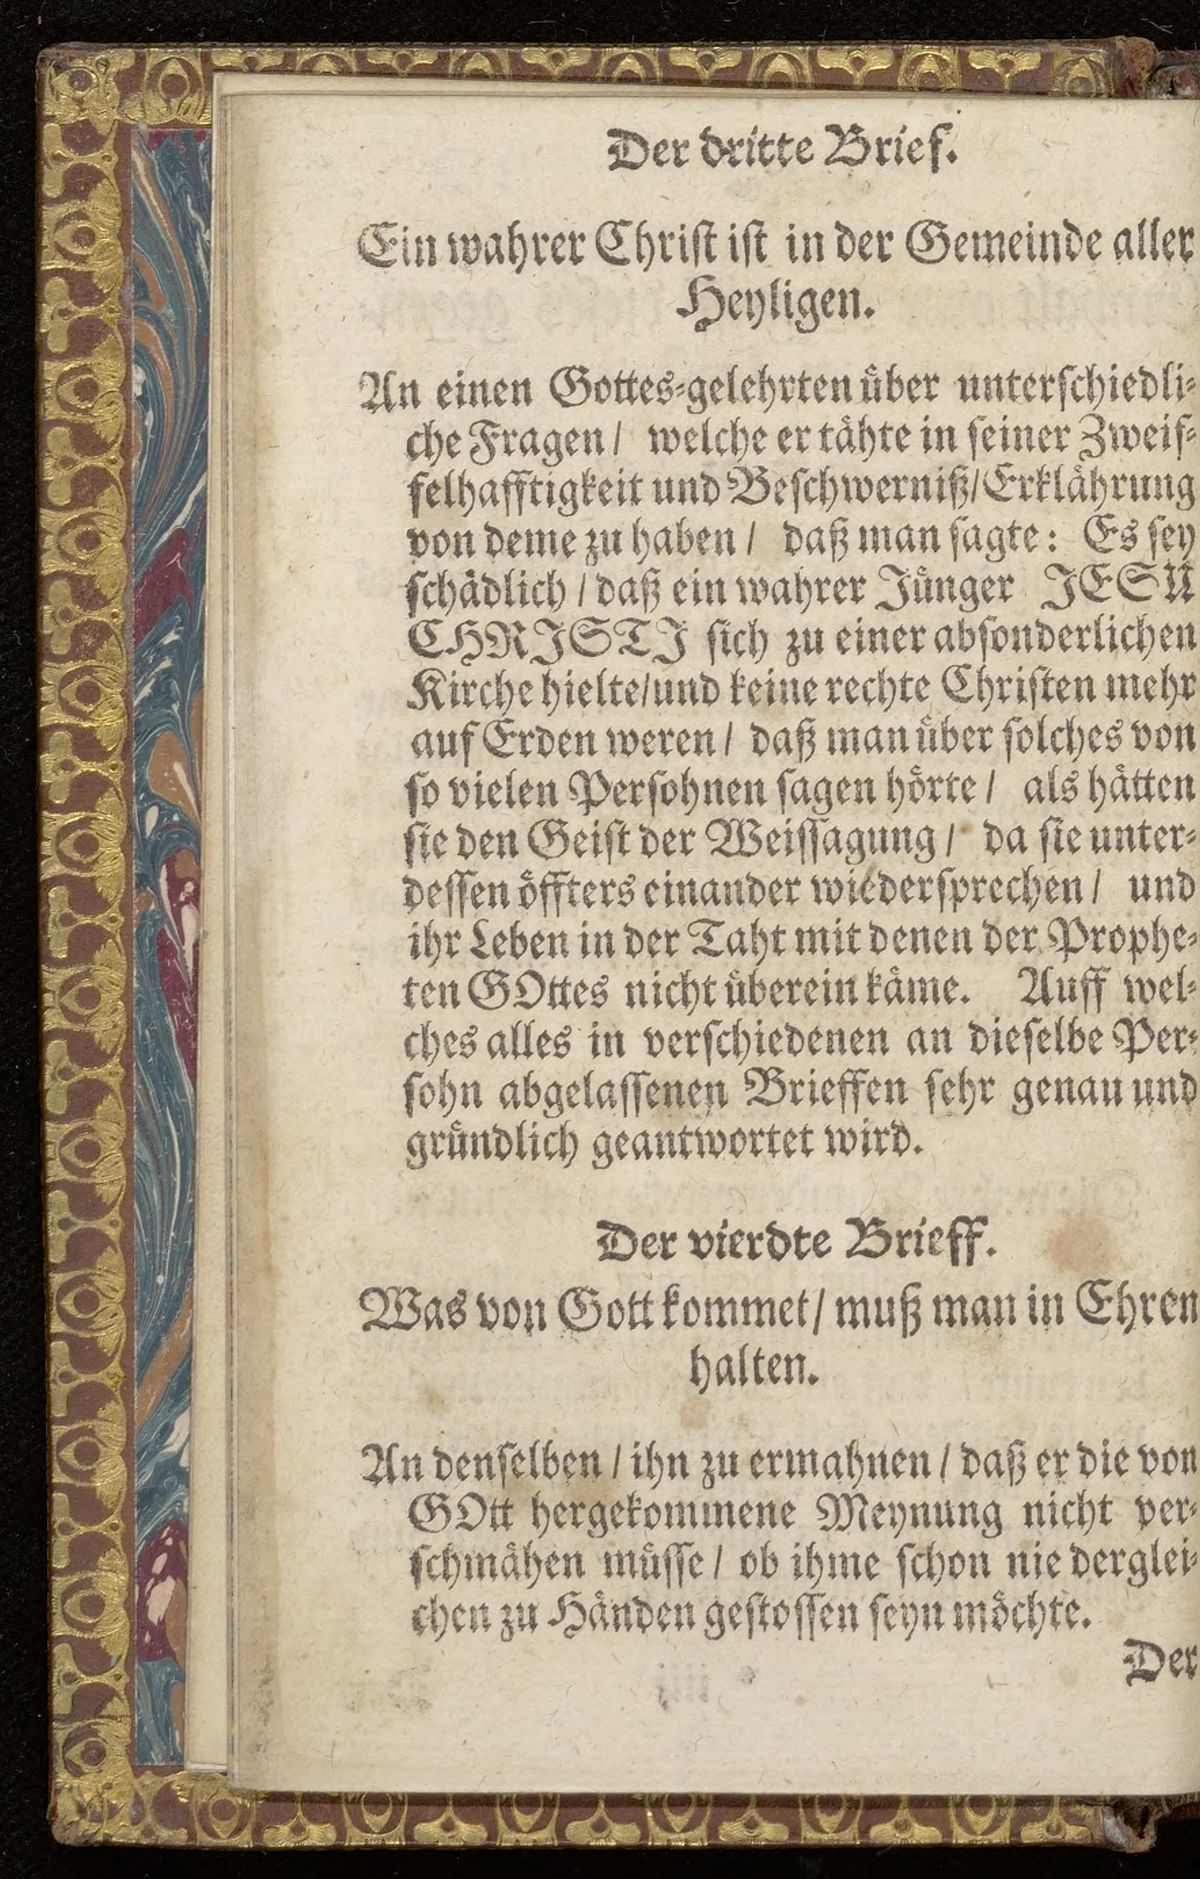 Der dritte Brief.
Ein wahrer Chriſt iſt in der Gemeinde aller
Heyligen.
An einen Gottes-gelehrten uͤber unterſchiedli-
che Fragen / welche er taͤhte in ſeiner Zweif-
felhafftigkeit und Beſchwerniß / Erklaͤhrung
von deme zu haben / daß man ſagte: Es ſey
ſchaͤdlich / daß ein wahrer Juͤnger JESU
CHRISTI ſich zu einer abſonderlichen
Kirche hielte / und keine rechte Chriſten mehr
auf Erden weren / daß man uͤber ſolches von
ſo vielen Perſohnen ſagen hoͤrte / als haͤtten
ſie den Geiſt der Weiſſagung / da ſie unter-
deſſen oͤffters einander wiederſprechen / und
ihr Leben in der Taht mit denen der Prophe-
ten GOttes nicht uͤberein kaͤme. Auff wel-
ches alles in verſchiedenen an dieſelbe Per-
ſohn abgelaſſenen Brieffen ſehr genau und
gruͤndlich geantwortet wird.
Der vierdte Brieff.
Was von Gott kommet / muß man in Ehren
halten.
An denſelben / ihn zu ermahnen / daß er die von
GOtt hergekommene Meynung nicht ver-
ſchmaͤhen muͤſſe / ob ihme ſchon nie derglei-
chen zu Haͤnden geſtoſſen ſeyn moͤchte.
Der